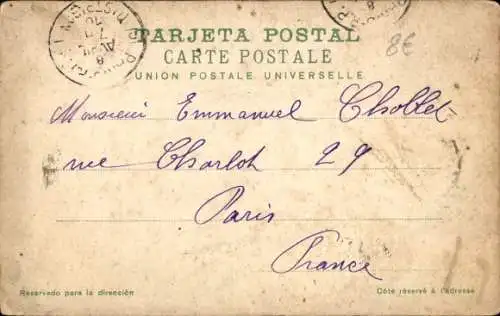 TARJETA POSTAL
CARTE POSTALE
UNION POSTALE UNIVERSELLE
8€
Monsieur Emmanuel Chollet
rue Charlot 29
Paris
France
Reservado para la dirección
Côté réservé à l'adresse